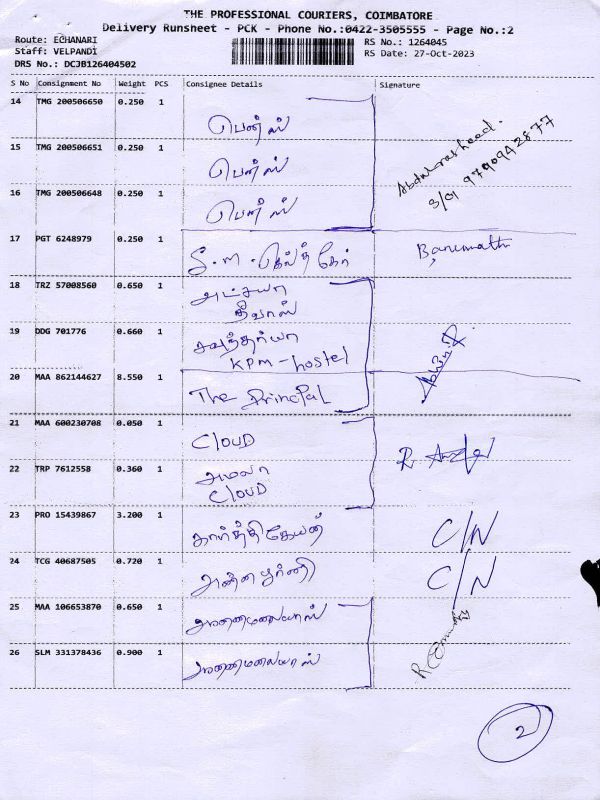 THE PROFESSIONAL COURIERS, COIMBATORE
Delivery Runsheet - PCK - Phone No.:0422-3505555 - Page No.:2
Route: ECHANARI
RS No.: 1264045
Staff: VELPANDI
RS Date: 27-Oct-2023
DRS No.: DCJB126404502
S No Consignment No Weight PCS Consignee Details Signature
14 TMG 200506650 0.250 1 பென்ஸ்
15 TMG 200506651 0.250 1 பென்ஸ்
Abdulrasheed.
9790942877
16 TMG 200506648 0.250 1 பென்ஸ்
17 PGT 6248979 0.250 1 S.M. ஹெல்த் கேர் Banumathi
18 TRZ 57008560 0.650 1 அட்சயா
தீவாஸ்
19 DDG 701776 0.660 1 சவுந்தர்யா
KPM-hostel
20 MAA 862144627 8.550 1 The Principal
21 MAA 600230708 0.050 1 CLOUD
22 TRP 7612558 0.360 1 அமலா
CLOUD
23 PRO 15439867 3.200 1 கார்த்திகேயன் C/N
24 TCG 40687505 0.720 1 அன்னபூர்ணி C/N
25 MAA 106653870 0.650 1 அண்ணாமலையாஸ்
26 SLM 331378436 0.900 1 அண்ணாமலையாஸ்
2